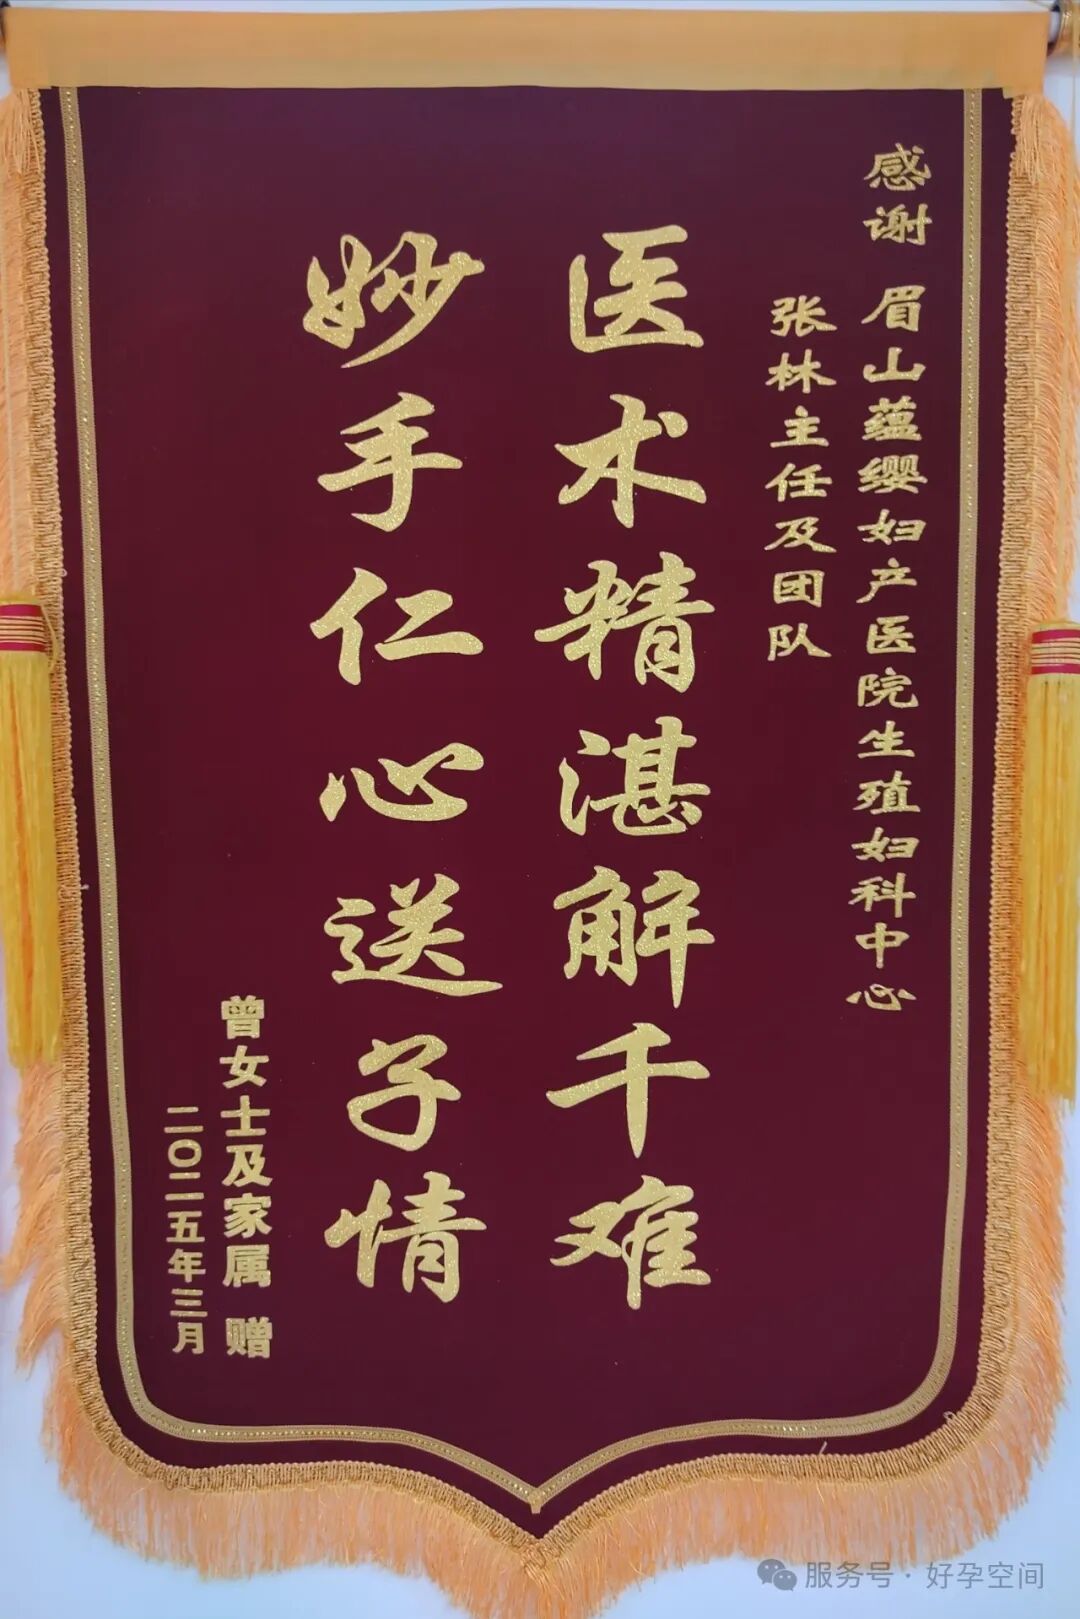 感谢 眉山蕴缨妇产医院生殖妇科中心
张林主任及团队
医术精湛解千难
妙手仁心送子情
曾女士及家属 赠
二〇二五年三月
服务号·好孕空间